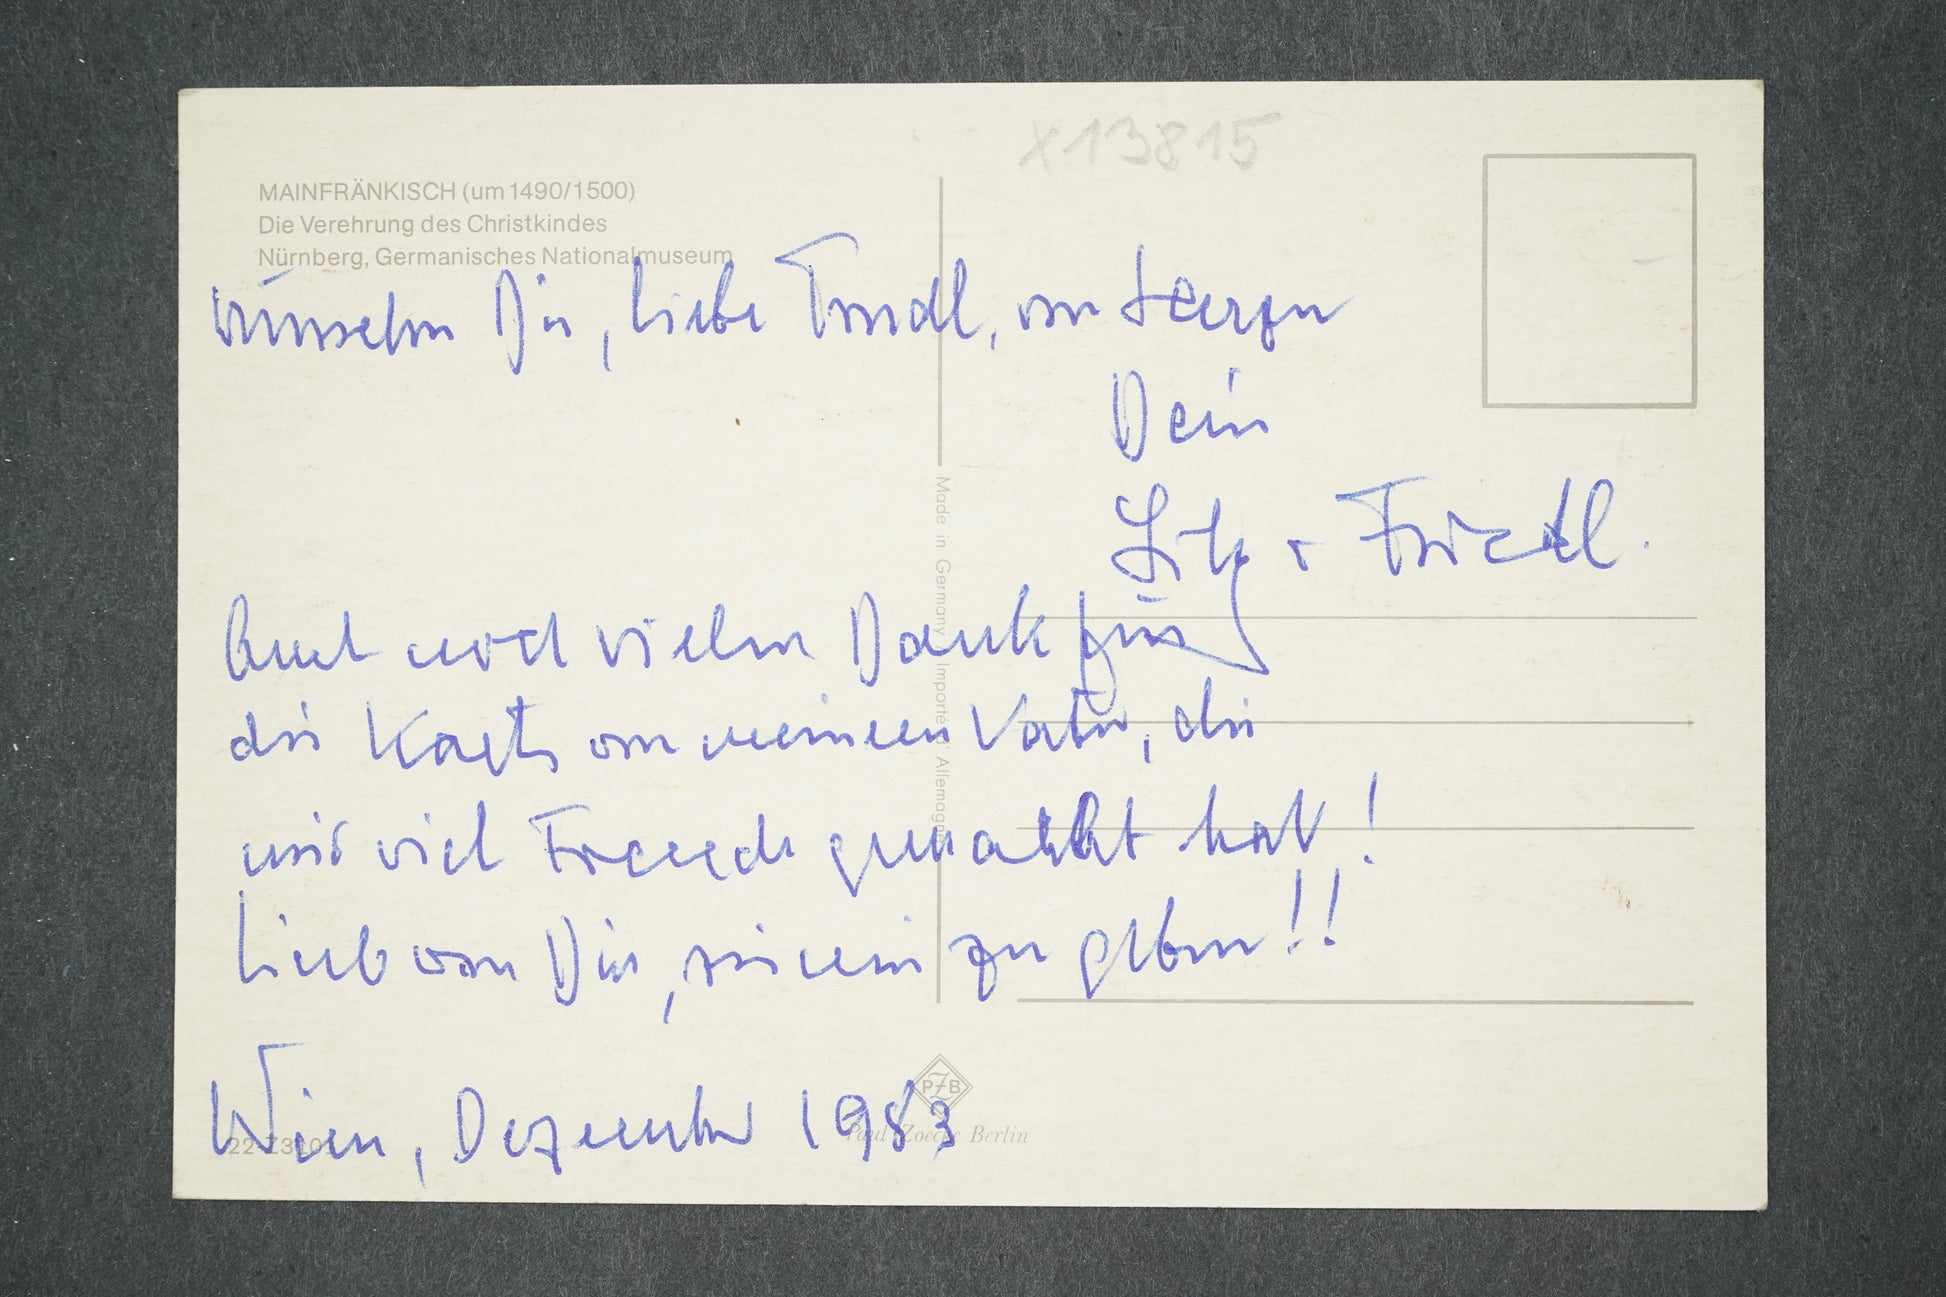 x13815
MAINFRÄNKISCH (um 1490/1500)
Die Verehrung des Christkindes
Nürnberg, Germanisches Nationalmuseum
wünschen Dir, liebe Trudl, von Herzen
Dein
Fritz + Friedl.
Auch noch vielen Dank für
die Karte von meinem Vater, die
mir viel Freude gemacht hat!
Lieb von Dir, sie mir zu geben!!
Wien, Dezember 1983
Made in Germany Importé Allemagne
PZB
Paul Zoecke Berlin